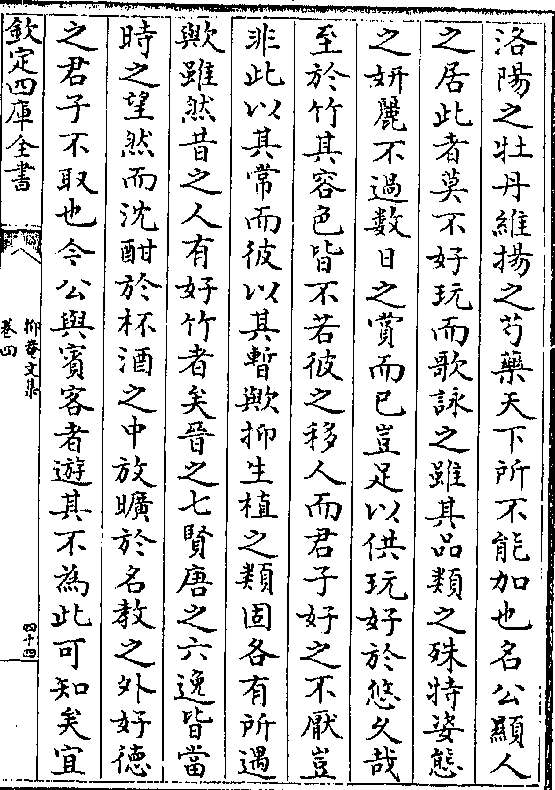 洛陽之牡丹維揚之芍藥天下所不能加也名公顯人
之居此者莫不好玩而歌詠之雖其品類之殊特姿態
之妍麗不過數日之賞而已豈足以供玩好於悠久哉
至於竹其容色皆不若彼之移人而君子好之不厭豈
非此以其常而彼以其暫歟抑生植之類固各有所遇
歟雖然昔之人有好竹者矣晉之七賢唐之六逸皆當
時之望然而沈酣於杯酒之中放曠於名教之外好德
之君子不取也今公與賓客者遊其不為此可知矣宜
欽定四庫全書
抑菴文集
卷四
四十四